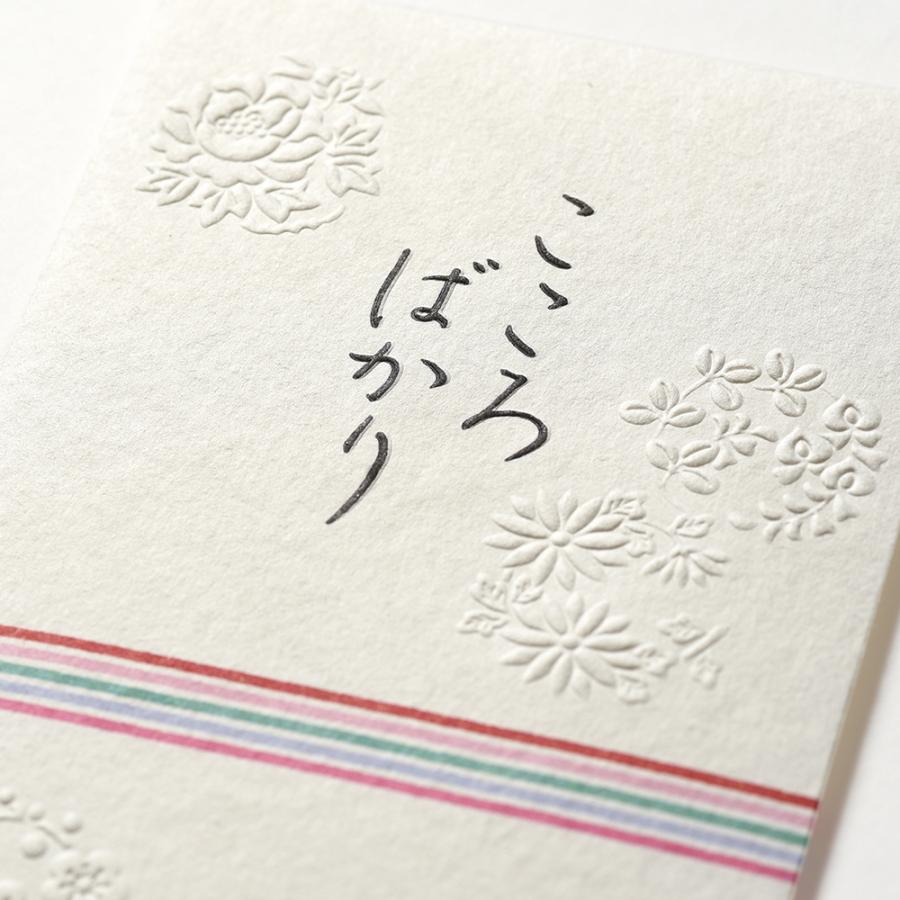 こころ
ばかり